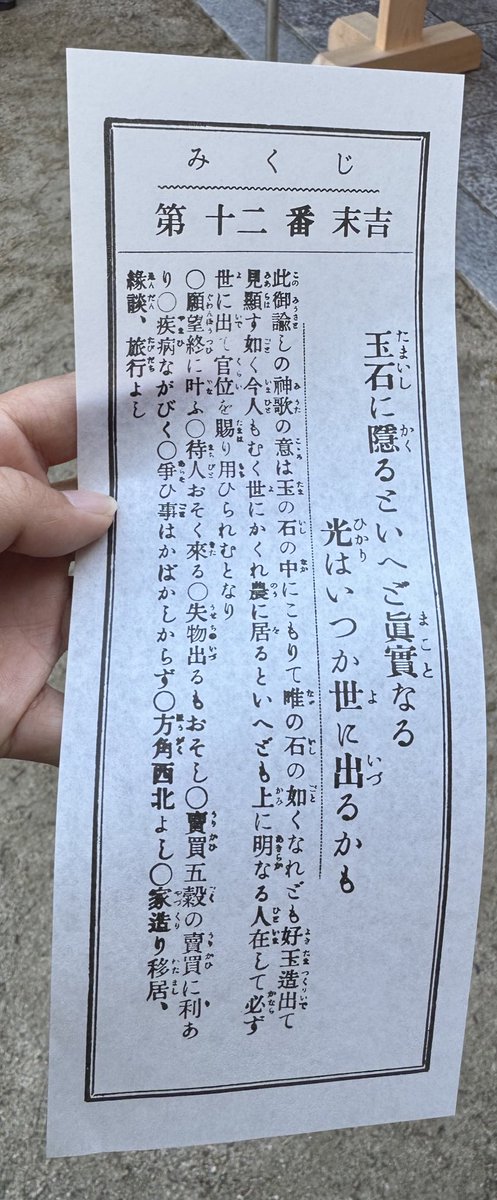 みくじ
第十二番末吉
玉石に隱るといへど眞實なる
光はいつか世に出るかも
此御諭しの神歌の意は玉の石の中にこもりて唯の石の如くなれども好玉造出て
見顯す如く今人もむく世にかくれ農に居るといへども上に明なる人在して必ず
世に出て官位を賜り用ひられむとなり
〇願望終に叶ふ〇待人おそく來る〇失物出るもおそし〇賣買五穀の賣買に利あ
り〇疾病ながびく〇爭ひ事はかばかしからず〇方角西北よし〇家造り移居、
緣談、旅行よし